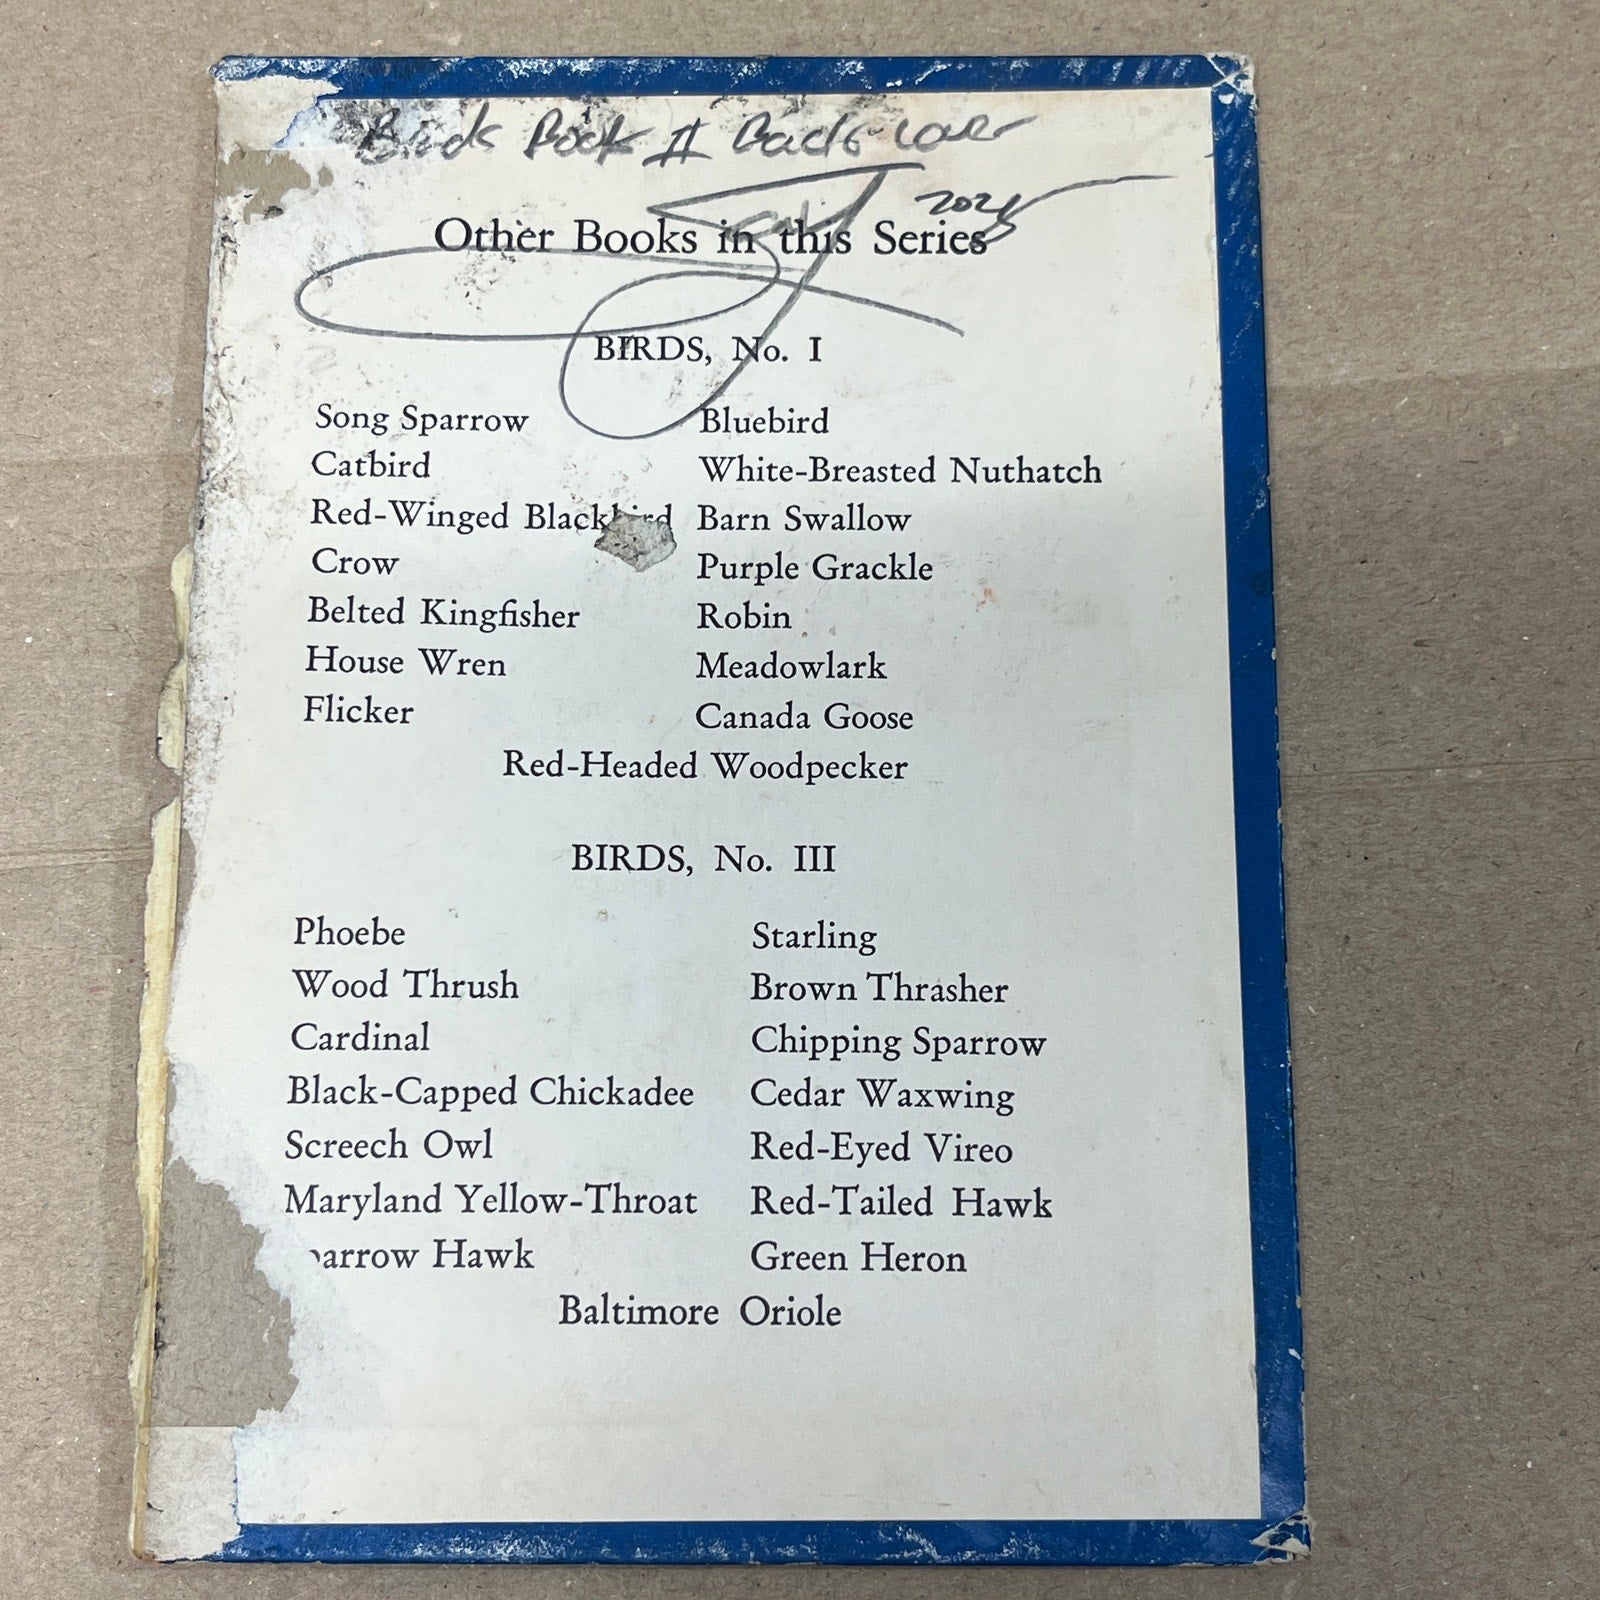 Birds Book II Back Cover
2025
Other Books in this Series
BIRDS, No. I
Song Sparrow Bluebird
Catbird White-Breasted Nuthatch
Red-Winged Blackbird Barn Swallow
Crow Purple Grackle
Belted Kingfisher Robin
House Wren Meadowlark
Flicker Canada Goose
Red-Headed Woodpecker
BIRDS, No. III
Phoebe Starling
Wood Thrush Brown Thrasher
Cardinal Chipping Sparrow
Black-Capped Chickadee Cedar Waxwing
Screech Owl Red-Eyed Vireo
Maryland Yellow-Throat Red-Tailed Hawk
parrow Hawk Green Heron
Baltimore Oriole